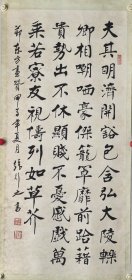 夫其明濟開豁包含弘大陵轢
卿相嘲哂豪傑籠罩靡前跆籍
貴勢出不休顯賤不憂戚戲萬
乘若寮友視儔列如草芥
東方畫贊 甲子年夏月 之書